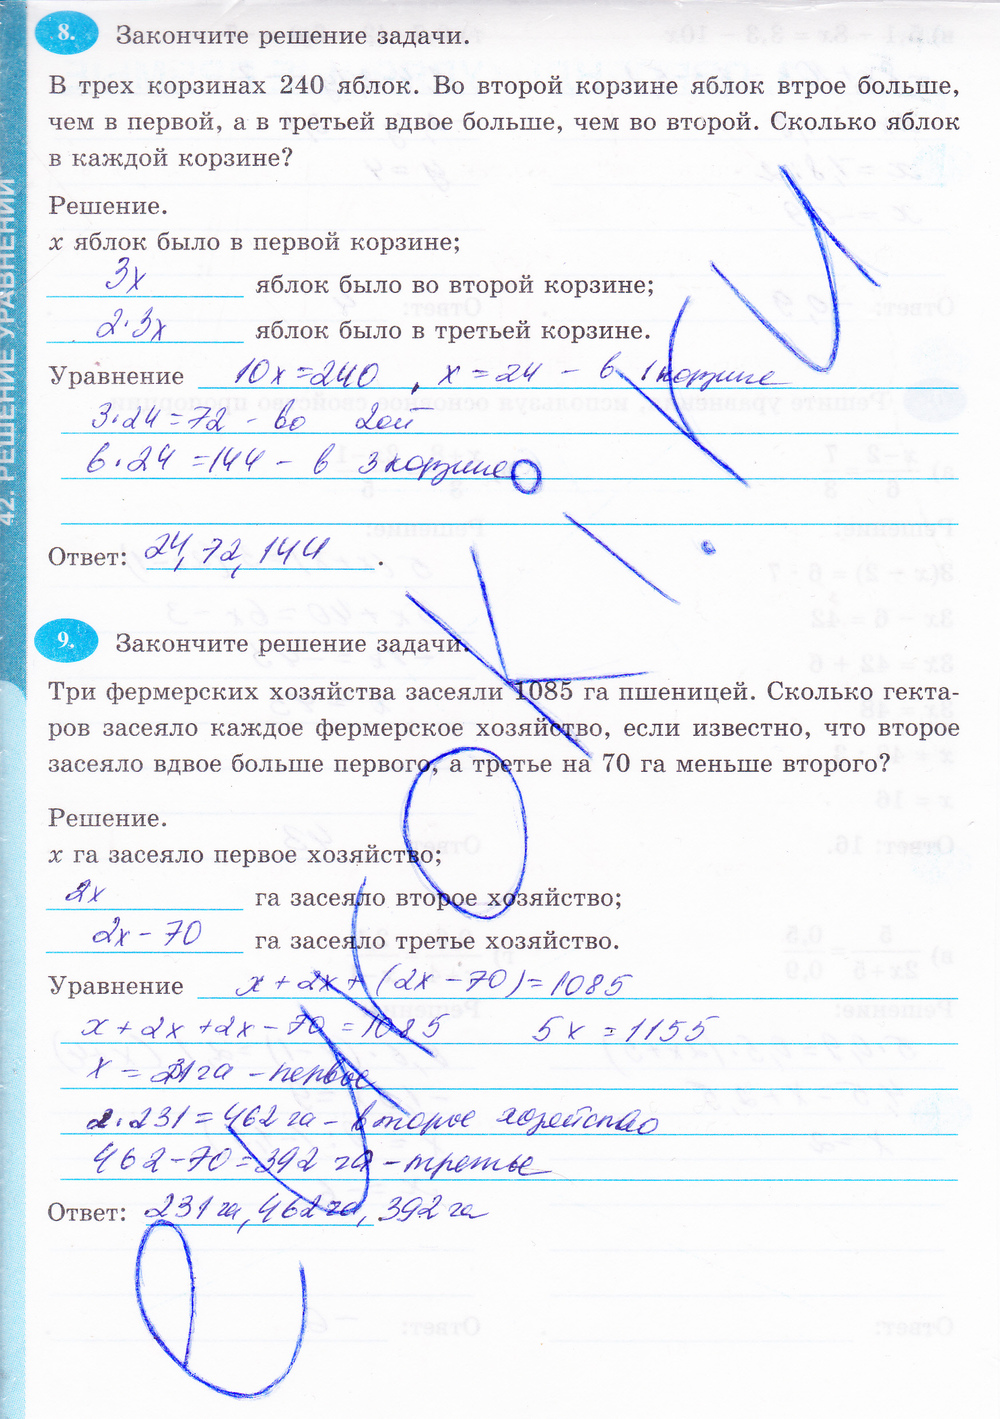 8. Закончите решение задачи.
В трех корзинах 240 яблок. Во второй корзине яблок втрое больше,
чем в первой, а в третьей вдвое больше, чем во второй. Сколько яблок
в каждой корзине?
Решение.
x яблок было в первой корзине;
3x яблок было во второй корзине;
2·3x яблок было в третьей корзине.
Уравнение 10x=240, x=24 – в 1 корзине
3·24=72 - во 2ой
6·24=144 - в 3 корзине
Ответ: 24, 72, 144.
9. Закончите решение задачи.
Три фермерских хозяйства засеяли 1085 га пшеницей. Сколько гекта-
ров засеяло каждое фермерское хозяйство, если известно, что второе
засеяло вдвое больше первого, а третье на 70 га меньше второго?
Решение.
x га засеяло первое хозяйство;
2x га засеяло второе хозяйство;
2x - 70 га засеяло третье хозяйство.
Уравнение x + 2x + (2x - 70) = 1085
x + 2x + 2x - 70 = 1085 5x = 1155
x = 231 га - первое
2·231 = 462 га - второе хозяйство
462 - 70 = 392 га - третье
Ответ: 231 га, 462 га, 392 га
42. РЕШЕНИЕ УРАВНЕНИЙ
eurokI.RU